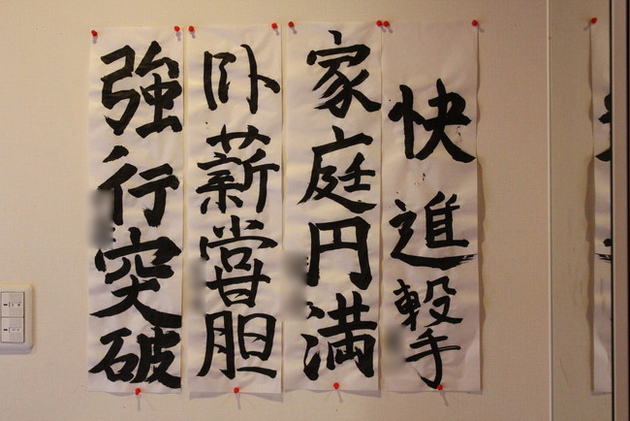 快進撃
家庭円満
卧薪甞胆
強行突破